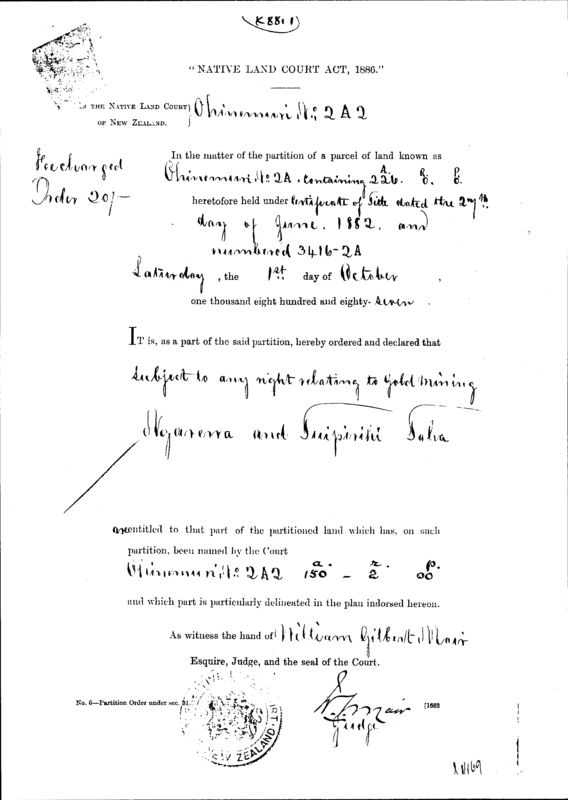 K 881
"NATIVE LAND COURT ACT, 1886."
IN THE NATIVE LAND COURT
OF NEW ZEALAND.
Ohinemuri No: 2A2
Order 20/-
In the matter of the partition of a parcel of land known as
Ohinemuri No: 2A. containing 226.
heretofore held under Certificate of Title dated the
day of June. 1882. and
numbered 3416-2A
Saturday, the 1st day of October,
one thousand eight hundred and eighty-seven.
IT is, as a part of the said partition, hereby ordered and declared that
subject to any right relating to Gold Mining
and Taha
are entitled to that part of the partitioned land which has, on such
partition, been named by the Court
Ohinemuri No: 2A2 a. 150 - r. 2 p. 00
and which part is particularly delineated in the plan indorsed hereon.
As witness the hand of William Gilbert Mair
Esquire, Judge, and the seal of the Court.
No. 6—Partition Order under sec. 21.
NEW ZEALAND
Mair
Judge
[1663